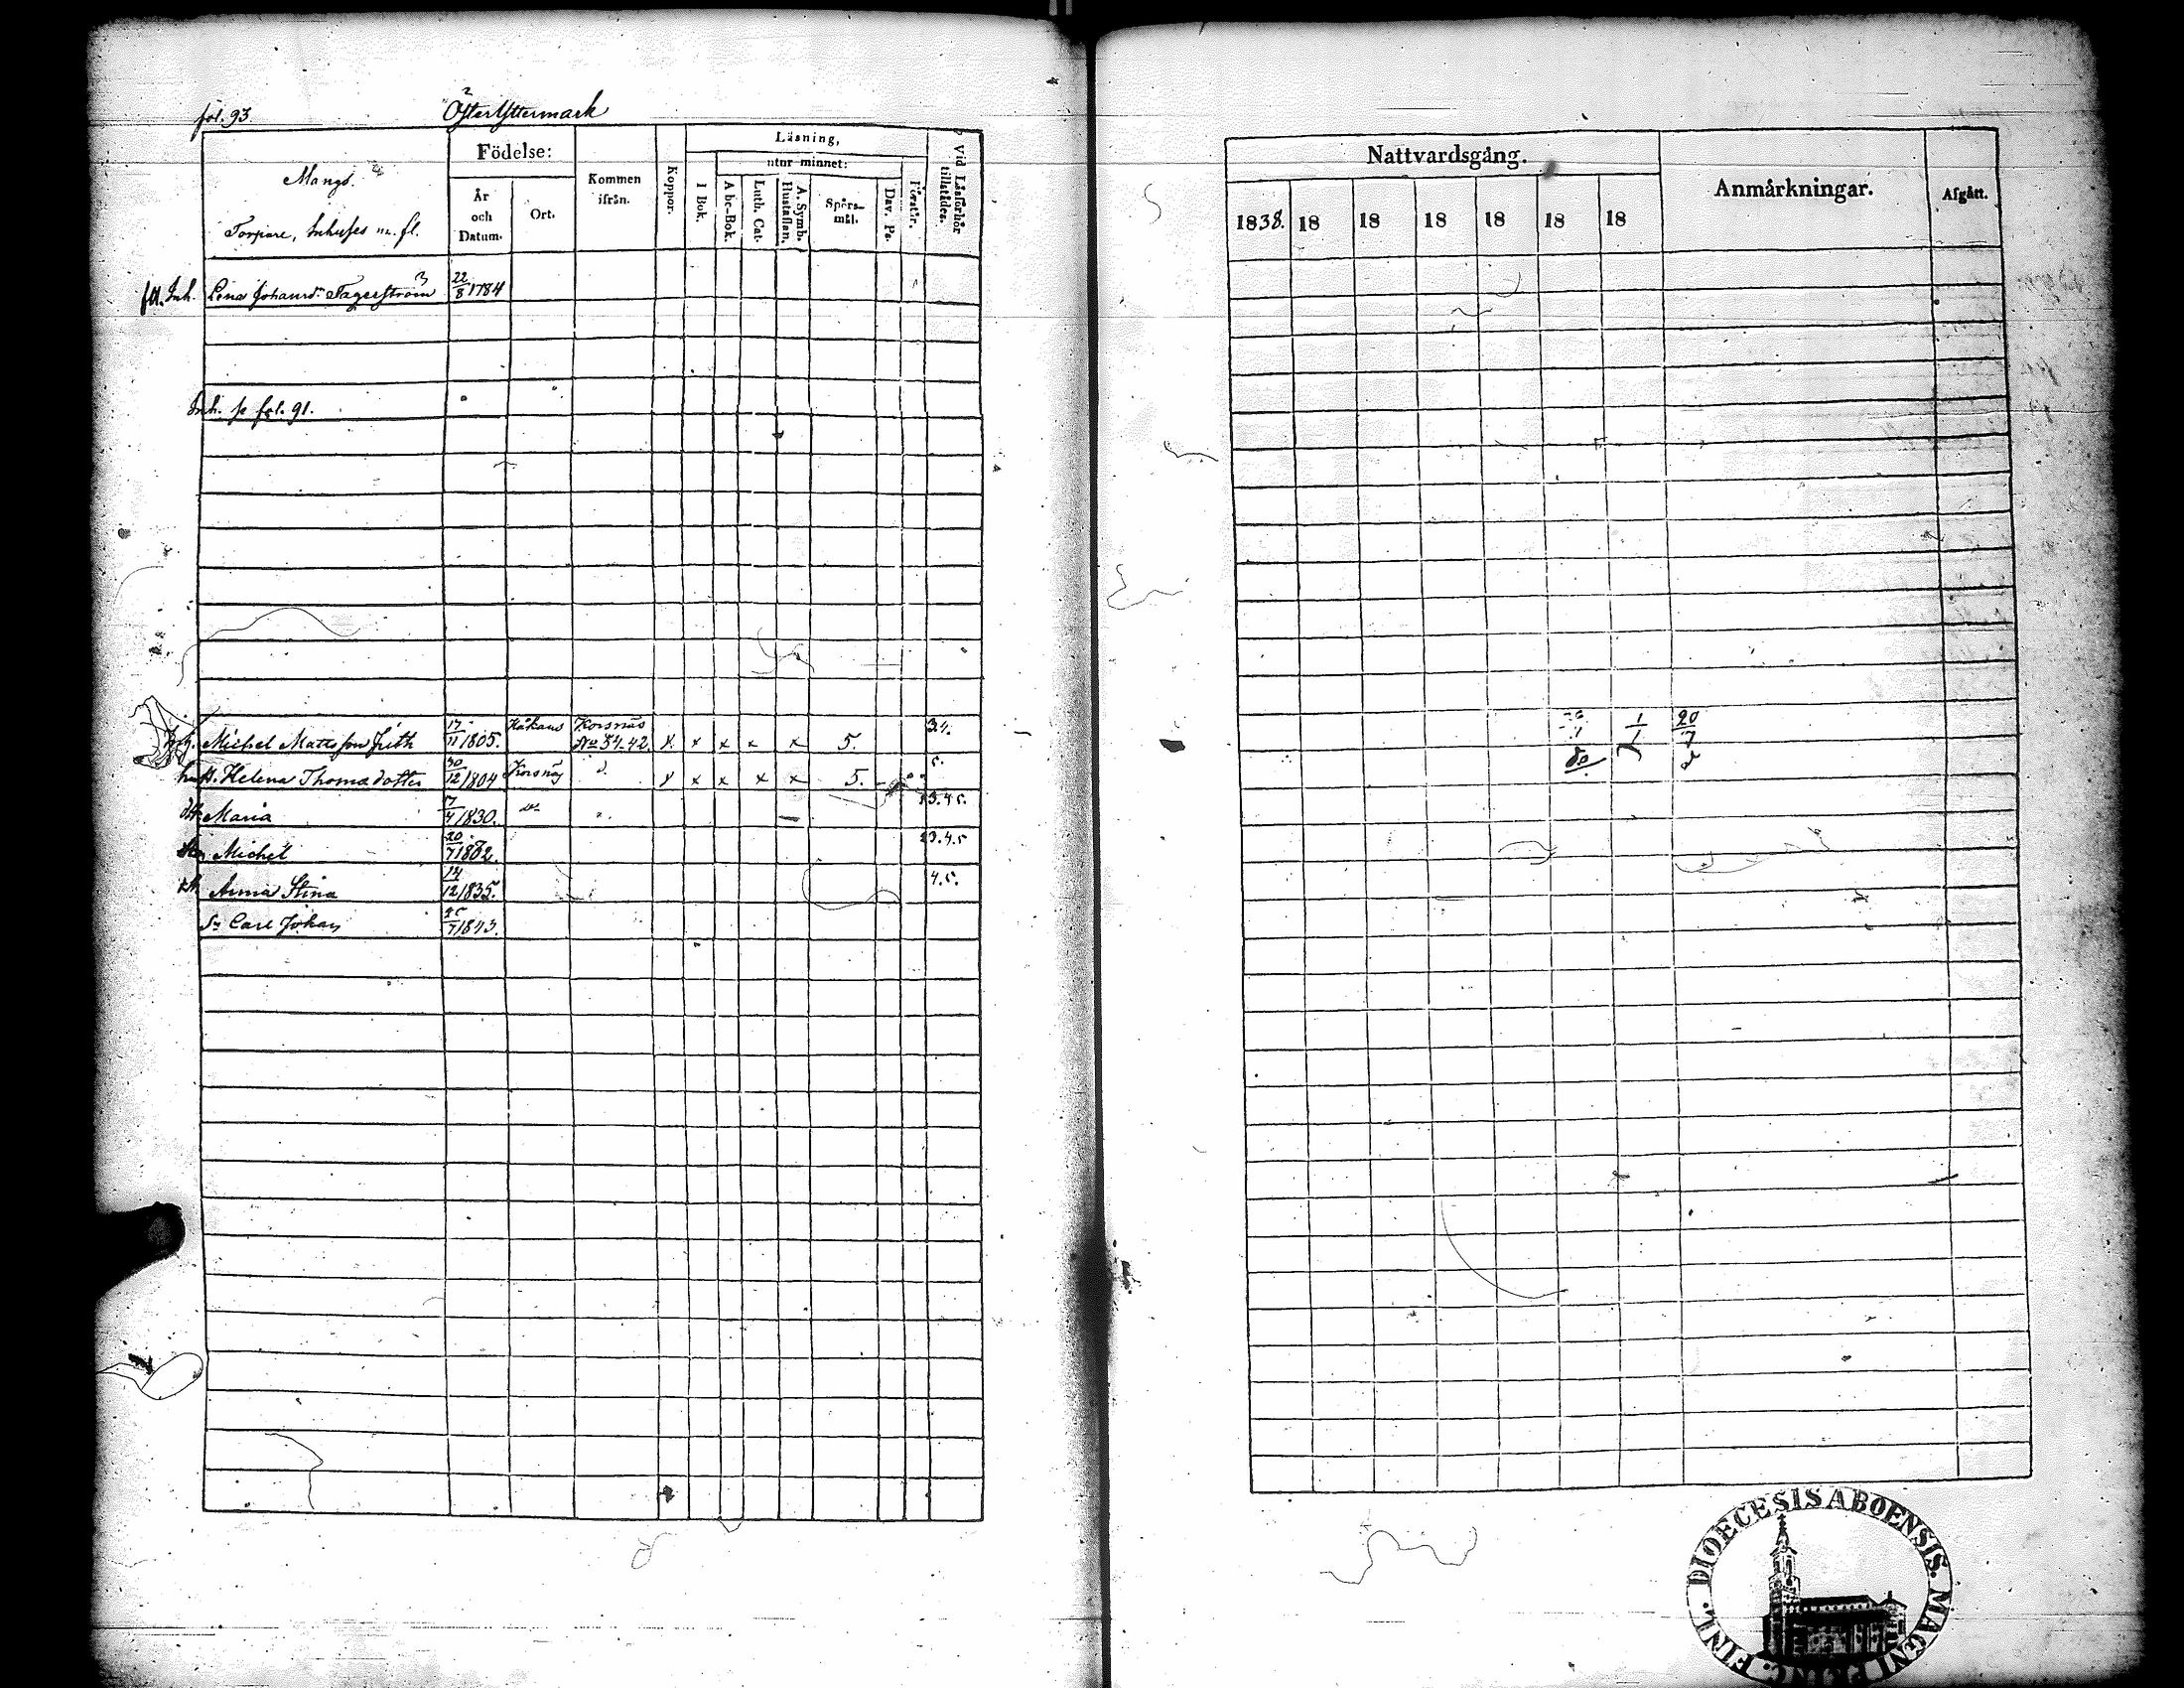 fol. 93. ÖfterYttermark
Mangs.
Torpare, Inhyses m. fl.
Födelse:
År
och
Datum.
Ort.
Kommen
ifrån.
Koppor.
Läsning,
utur minnet:
I Bok.
Abc-Bok.
Luth. Cat.
A. Symb.
Hustaflan.
Spörs-
mål.
Dav. Ps.
Förstår.
Vid Läsförhör
tillstädes.
Nattvardsgång.
1838. 18 18 18 18 18 18
Anmärkningar.
Afgått.
Inh. Lena Johansdr Fagerström 22/8 1784
Inh. se fol. 91.
Michel Mattsson 17/11 1805. Håkans Korsnäs No 34.42. x x x x x 5. 3.4. 1/1 20/7
hust. Helena Thomædotter 30/12 1804 Korsnäs d. x x x x x 5. 5. do d
dtt Maria 7/4 1830. do 3.4.5.
Michel 20/7 1832. 23.4.5
dtt Anna Stina 14/12 1835. 4.5.
Sn Carl Johan 25/7 1843.
DIOECESIS ABOENSIS. MAGNI PRINC. FINL.